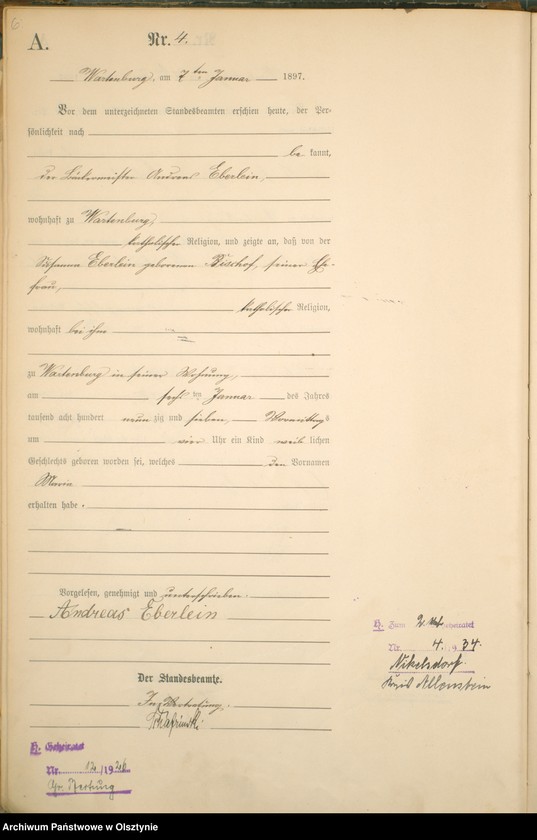 6
A.
Nr. 4.
Wartenburg, am 7ten Januar 1897.
Vor dem unterzeichneten Standesbeamten erschien heute, der Per-
sönlichkeit nach
be kannt,
der Bäckermeister Andreas Eberlein,
wohnhaft zu Wartenburg,
katholischer Religion, und zeigte an, daß von der
Susanna Eberlein geborenen Bischof, seiner Ehe-
frau,
katholischer Religion,
wohnhaft bei ihm
zu Wartenburg in seiner Wohnung,
am sechsten Januar des Jahres
tausend acht hundert neun zig und sieben, Vormittags
um vier Uhr ein Kind weib lichen
Geschlechts geboren worden sei, welches den Vornamen
Maria
erhalten habe.
Vorgelesen, genehmigt und unterschrieben.
Andreas Eberlein
Der Standesbeamte.
In Vertretung.
H. Zum 2 geheiratet
Nr. 4. 1934.
Nikelsdorf
Kreis Allenstein
H. Geheiratet
Nr. 12/1926
Archiwum Państwowe w Olsztynie